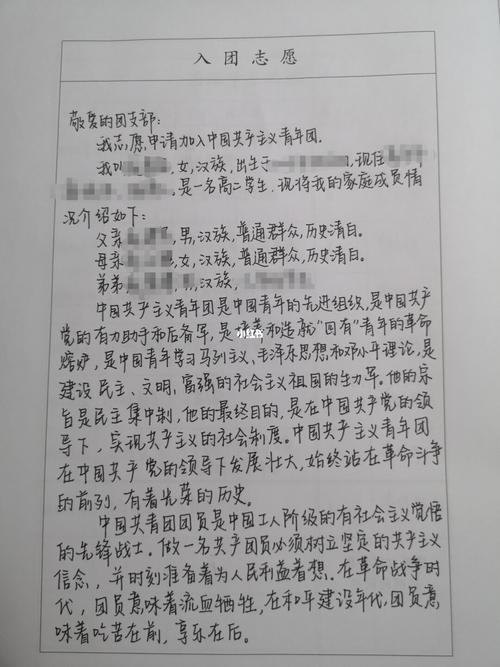 入团志愿
敬爱的团支部:
我志愿申请加入中国共产主义青年团。
我叫,女,汉族,出生于,现住
,是一名高二学生.现将我的家庭成员情
况介绍如下:
父亲,男,汉族,普通群众,历史清白。
母亲,女,汉族,普通群众,历史清白。
弟弟,男,汉族,
中国共产主义青年团是中国青年的先进组织,是中国共产
党的有力助手和后备军,是培养和造就"四有"青年的革命
熔炉,是中国青年学习马列主义,毛泽东思想和邓小平理论,是
建设民主、文明,富强的社会主义祖国的生力军。他的宗
旨是民主集中制,他的最终目的,是在中国共产党的领
导下,实现共产主义的社会制度。中国共产主义青年团
在中国共产党的领导下发展壮大,始终站在革命斗争
的前列,有着光荣的历史。
中国共青团团员是中国工人阶级的有社会主义觉悟
的先锋战士。做一名共产团员必须树立坚定的共产主义
信念,并时刻准备着为人民利益着想。在革命战争时
代,团员意味着流血牺牲,在和平建设年代,团员意
味着吃苦在前,享乐在后。
小红书